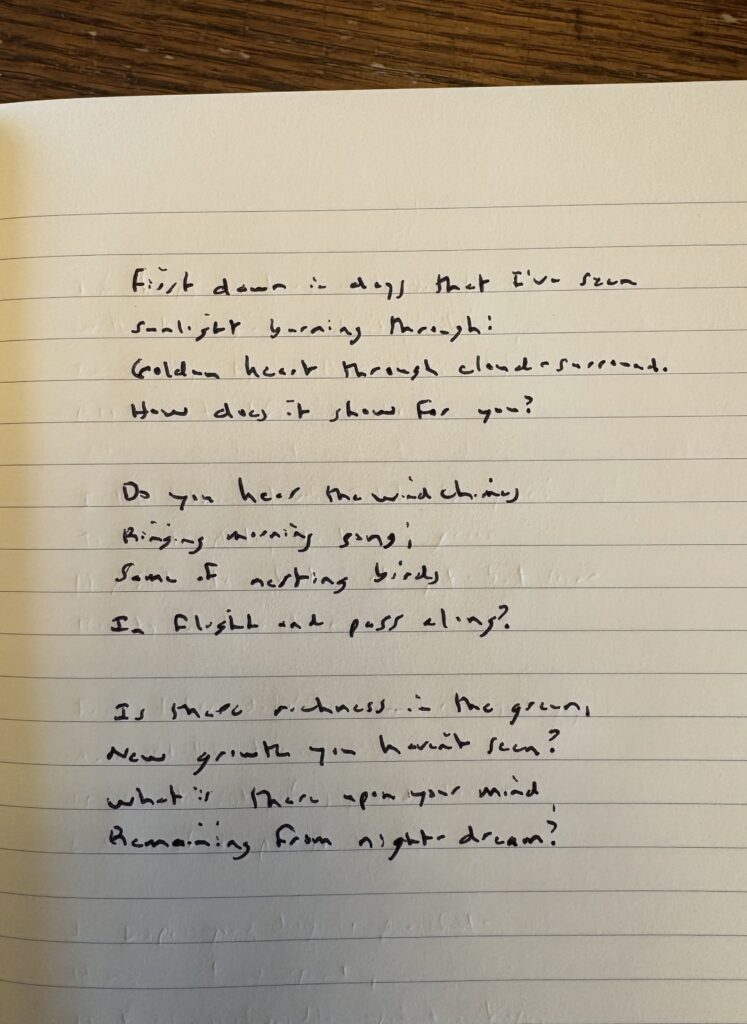 First dawn in days that I've seen
sunlight burning through:
Golden heart through cloud-surround.
How does it show for you?
Do you hear the windchimes
Ringing morning song;
Some of nesting birds
In flight and pass along?
Is there richness in the green,
New growth you haven't seen?
What is there upon your mind,
Remaining from night-dream?